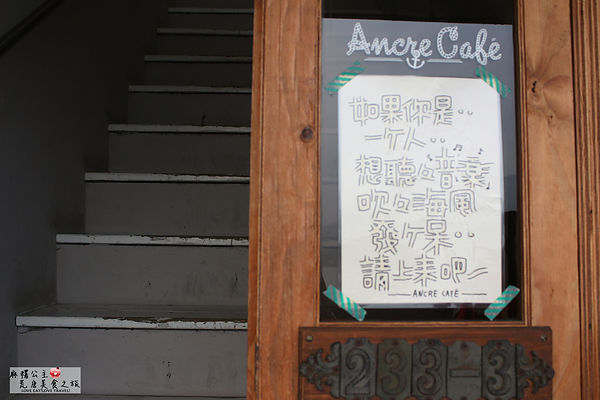 Ancre Café
如果你是..
一个人..
想聽点音樂
吹点海風
發个呆..
請上來吧
ANCRE CAFÉ
233-3
麻糬公主
荒唐美食之旅
LOVE EAT&LOVE TRAVEL!